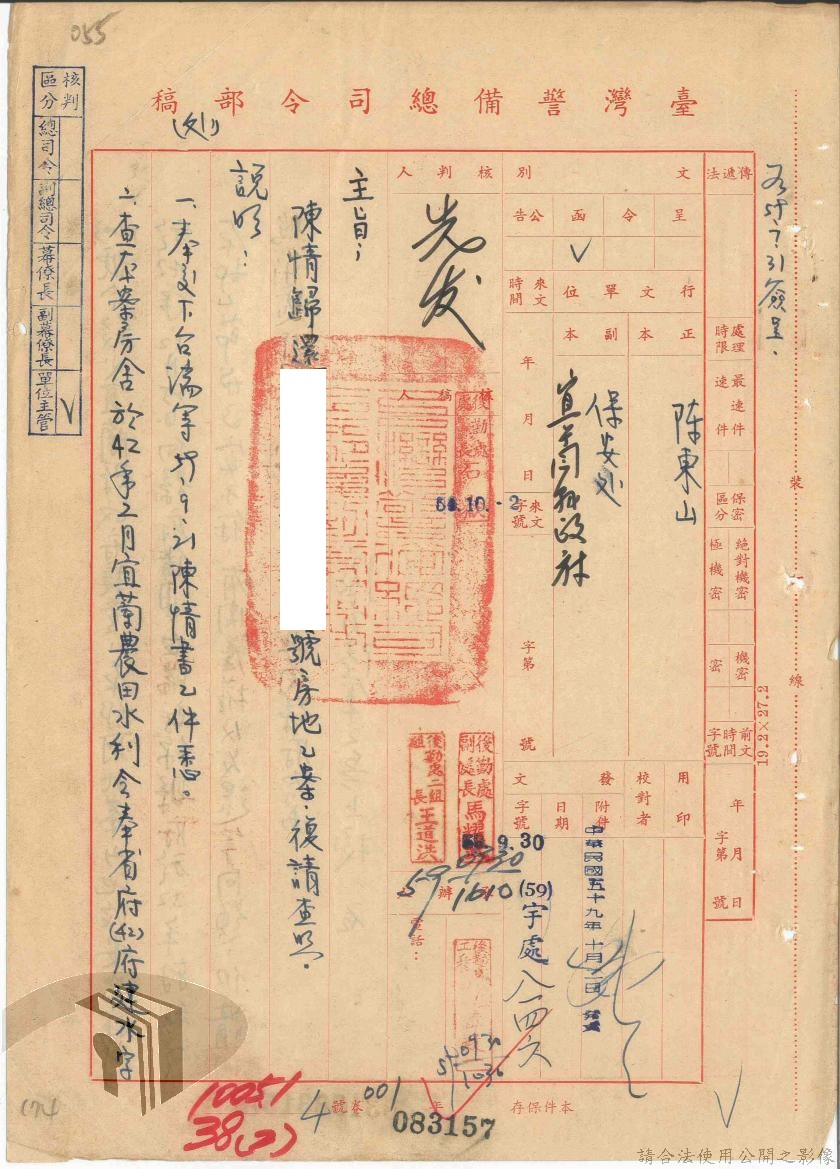 055
臺灣警備總司令部稿
(列)
核判區分
總司令
副總司令
幕僚長
副幕僚長
單位主管
V
59.7.31簽呈.
傳遞法
處理時限
最速件
速件
保密區分
絕對機密
極機密
機密
密
前文時間字號
年月日
字第號
裝
線
19.2×27.2
文別
呈
令
函
公告
V
行文單位
正本
副本
來文時間
年月日
來文字號
字第號
陳東山
保安處
宜蘭縣政府
核判人
先发
核稿人
後勤處處長
59.10.-2
後勤處副處長馬
後勤處二組組長王道洪
9.30
0930
59
1610
電話:
用印
校對者
發文
附件
日期
字號
中華民國五十九年十月二日發文
(59)宇處八一四六
59
0930
1030
主旨:
陳情歸還
號房地乙案,復請查照.
說明:
一、奉交下台端等59.9.21陳情書乙件悉。
二、查本案房舍於42年2月宜蘭農田水利會奉省府(42)府建水字
本件保存
年
卷號
001
4
083157
1005.1
38(2)
174
V
請合法使用公開之影像